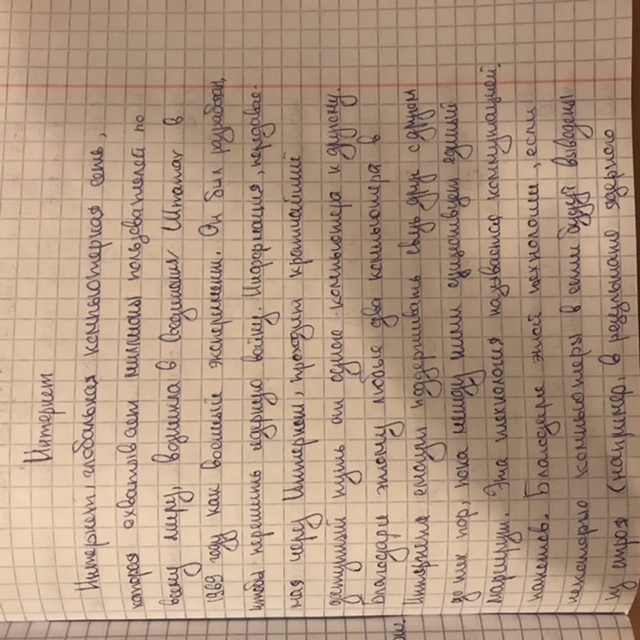 Интернет
Интернет, глобальная компьютерная сеть,
которая охватывает миллионы пользователей по
всему миру, возникла в Соединших Штатах в
1969 году как военный эксперимент. Он был разработан,
чтобы пережить ядерную войну. Информация, передавае-
мая через Интернет, проходит кратчайший
доступный путь от одного компьютера к другому.
Благодаря этому любые два компьютера в
Интернете смогут поддерживать связь друг с другом
до тех пор, пока между ними существует единый
маршрут. Эта технология называется коммутацией
пакетов. Благодаря этой технологии, если
некоторые компьютеры в сети будут выведены
из строя (например, в результате ядерного